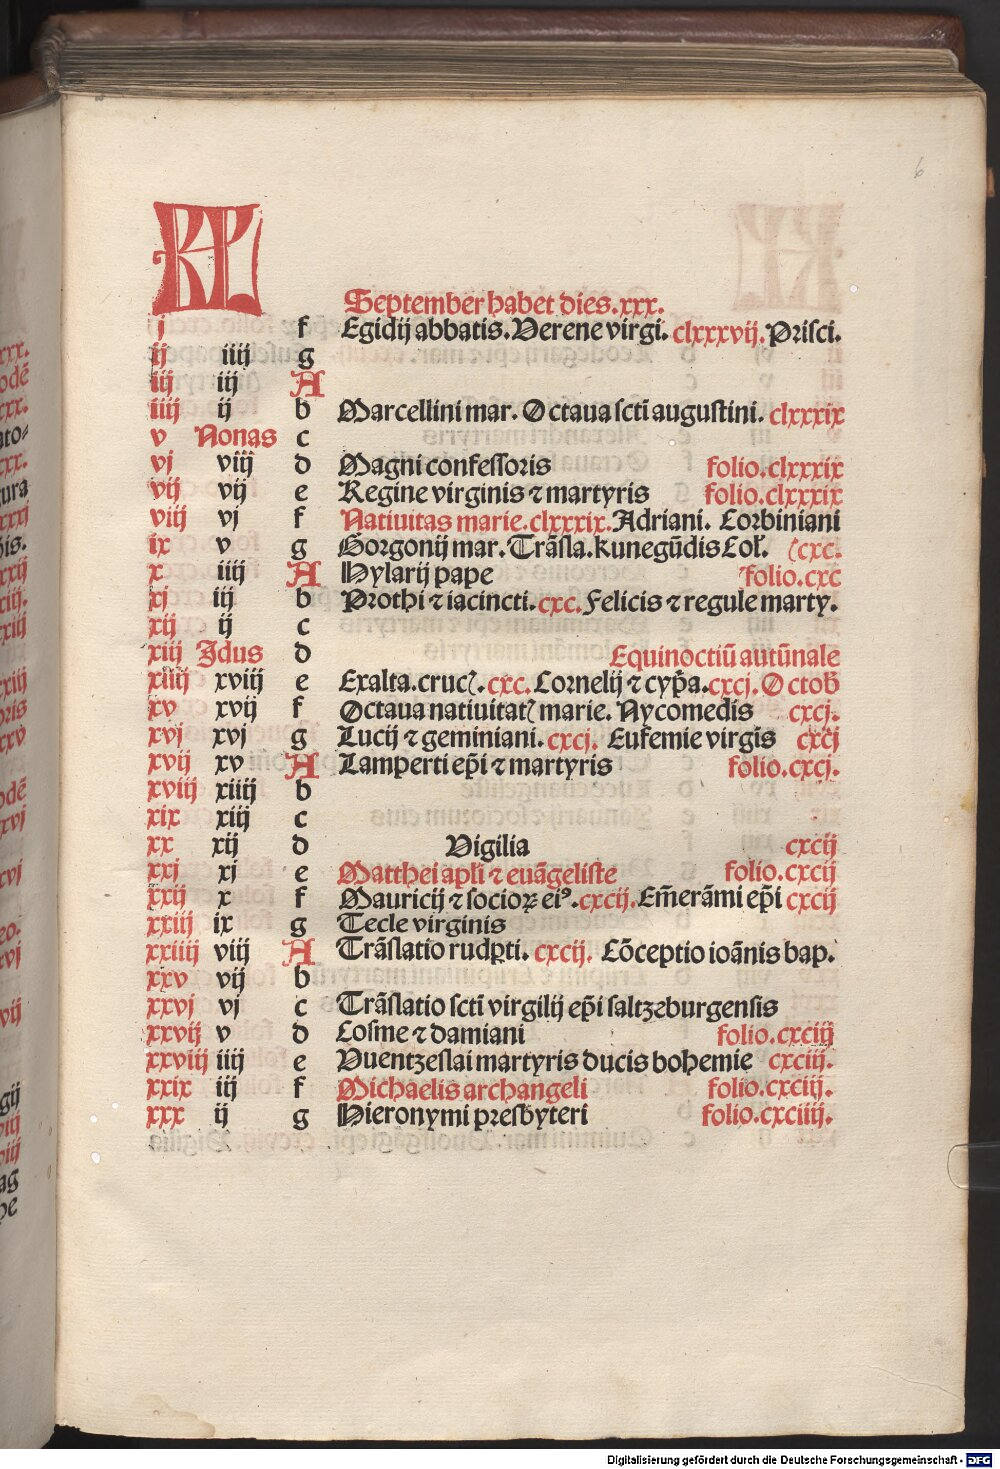 6
KL
September habet dies.xxx.
j f Egidij abbatis.Verene virgi. clxxxvij.Prisci.
ij iiij g
iij iij A
iiij ij b Marcellini mar. Octaua scti̅ augustini. clxxxix
v Nonas c
vj viij d Magni confessoris folio.clxxxix
vij vij e Regine virginis ⁊ martyris folio.clxxxix
viij vj f Natiuitas marie.clxxxix.Adriani. Corbiniani
ix v g Gorgonij mar.Tra̅sla.kunegu̅dis Col̕. (cxc.
x iiij A Hylarij pape folio.cxc
xj iij b Prothi ⁊ iacincti.cxc.Felicis ⁊ regule marty.
xij ij c
xiij Jdus d Equinoctiu̅ autu̅nale
xiiij xviij e Exalta.cruc̕.cxc.Cornelij ⁊ cyp̅a.cxcj.Octob̕
xv xvij f Octaua natiuitat̕ marie. Nycomedis cxcj.
xvj xvj g Lucij ⁊ geminiani.cxcj. Eufemie virgis cxcj
xvij xv A Lamperti ep̅i ⁊ martyris folio.cxcj.
xviij xiiij b
xix xiij c
xx xij d Vigilia cxcij
xxj xj e Matthei apl̅i ⁊ eua̅geliste folio.cxcij
xxij x f Mauricij ⁊ socioꝝ eiꝰ.cxcij.Em̅era̅mi ep̅i cxcij
xxiij ix g Tecle virginis
xxiiij viij A Tra̅slatio rudꝑti. cxcij. Co̅ceptio ioa̅nis bap.
xxv vij b
xxvj vj c Tra̅slatio scti̅ virgilij ep̅i saltzeburgensis
xxvij v d Cosme ⁊ damiani folio.cxciij
xxviij iiij e Vuentzeslai martyris ducis bohemie cxciij.
xxix iij f Michaelis archangeli folio.cxciij.
xxx ij g Hieronymi presbyteri folio.cxciiij.
Digitalisierung gefördert durch die Deutsche Forschungsgemeinschaft - DFG